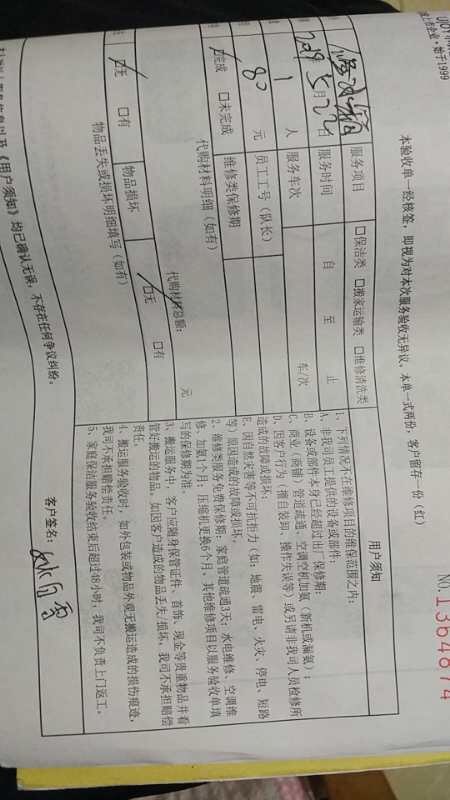 始于1999
NO.1364874
本验收单一经核签，即视为对本次服务验收无异议。本单一式两份，客户留存一份（红）
服务项目 □保洁类 □搬家运输类 □维修清洗类
2019 5月22日 服务时间 自 至 止
1 人 服务车次 车/次
80 元 员工工号（队长）
☑完成 □未完成 维修类保修期
代购材料明细（如有）
代购材料总额： 元
☑无 □有 物品损坏 ☑无 □有
物品丢失或损坏明细填写（如有）
用户须知
1、下列情况不在维修项目的维保范围之内：
A、非我司员工提供的设备或部件；
B、设备或部件本身已经超过出厂保修期；
C、商业（商铺）管道疏通、空调空机加氨（新机或漏氨）；
D、因客户行为（擅自装卸、操作失误等）或另请非我司人员检修所
造成的故障或损坏；
E、因自然灾害等不可抗拒力（如：地震、雷电、火灾、停电、短路
等）原因造成的故障或损坏。
2、维修类服务免费保修期：家庭管道疏通3天；水电维修、空调维
修、加氨1个月；压缩机更换6个月，其他维修项目以服务验收单填
写的保修期为准。
3、搬运服务中，客户应随身保管证件、首饰、现金等贵重物品并看
管好搬运的物品，如因客户造成的物品丢失/损坏，我司不承担赔偿
责任。
4、搬运服务验收时，如外包装或物品外观无搬运造成的损伤痕迹，
我司不承担赔偿责任。
5、家庭保洁服务验收结束后超过48小时，我司不负责上门返工。
《用户须知》均已确认无误，不存在任何争议纠纷。
客户签名：